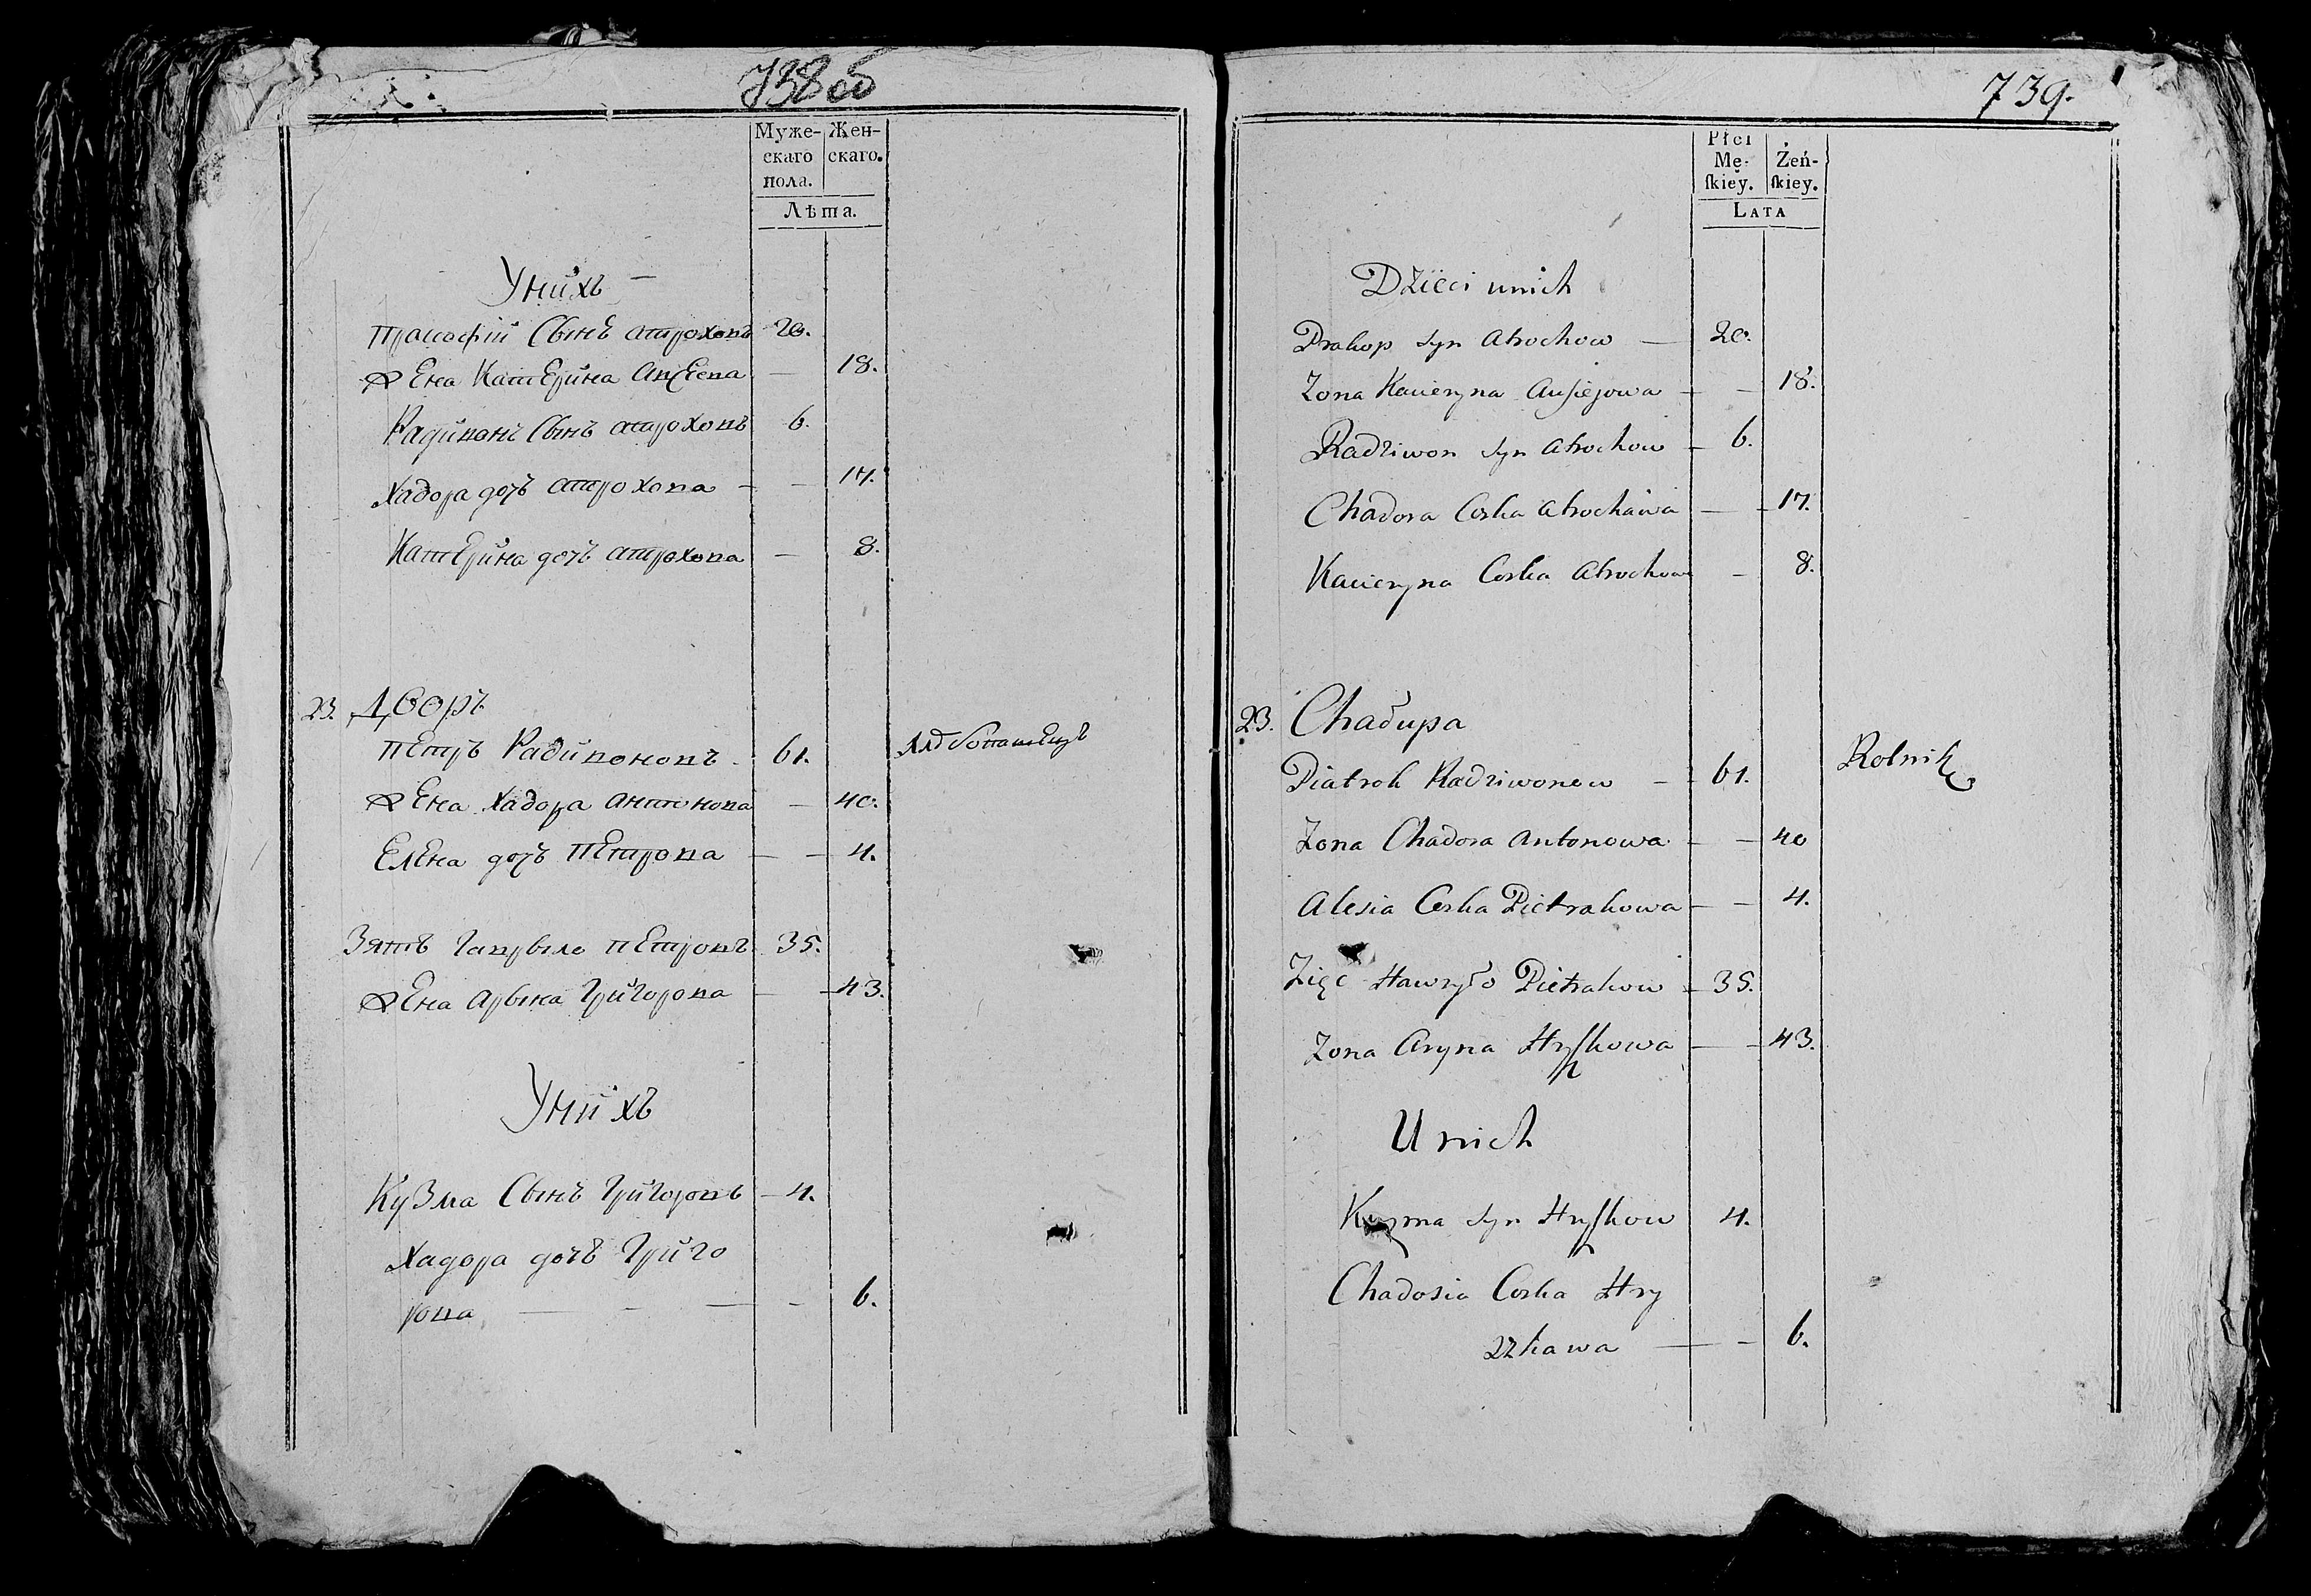 738 об
Муже-
скаго
пола.
Жен-
скаго.
Лѣта.
У нихъ —
Пракофий Сынъ Атроховъ 20.
Жена Катерина Авсеева — 18.
Радивонъ Сынъ Атроховъ 6.
Хадора дочь Атрохова — — 17.
Катерина дочь Атрохова — 8.
23. Дворъ
Петръ Радивоновъ 61.
Жена Хадора Антонова — 40.
Елена дочь Петрова — — 4.
Зять Гаврыло Петровъ 35.
Жена Арына Григорова — 43.
У нихъ
Кузма Сынъ Григоровъ — 4.
Хадора дочь Григо
рова — — — — 6.
739.
Płci
Mę-
skiey.
Żeń-
skiey.
LATA
Dzieci unich
Prakop Syn Atrochow — 20.
Zona Kacieryna Ausiejowa — — 18.
Radziwon Syn Atrochow — 6.
Chadora Corka Atrochawa — — 17.
Kacieryna Corka Atrochowa — 8.
23. Chałupa
Piatrok Radziwonow — 61. Rolnik
Zona Chadora Antonowa — — 40
Alesia Corka Pietrakowa — — 4.
Zięc Hawryło Pietrakow — 35.
Zona Aryna Hryszkowa — — 43.
U nich
Kuzma Syn Hryszkow 4.
Chadosia Corka Hry
szkawa — — 6.